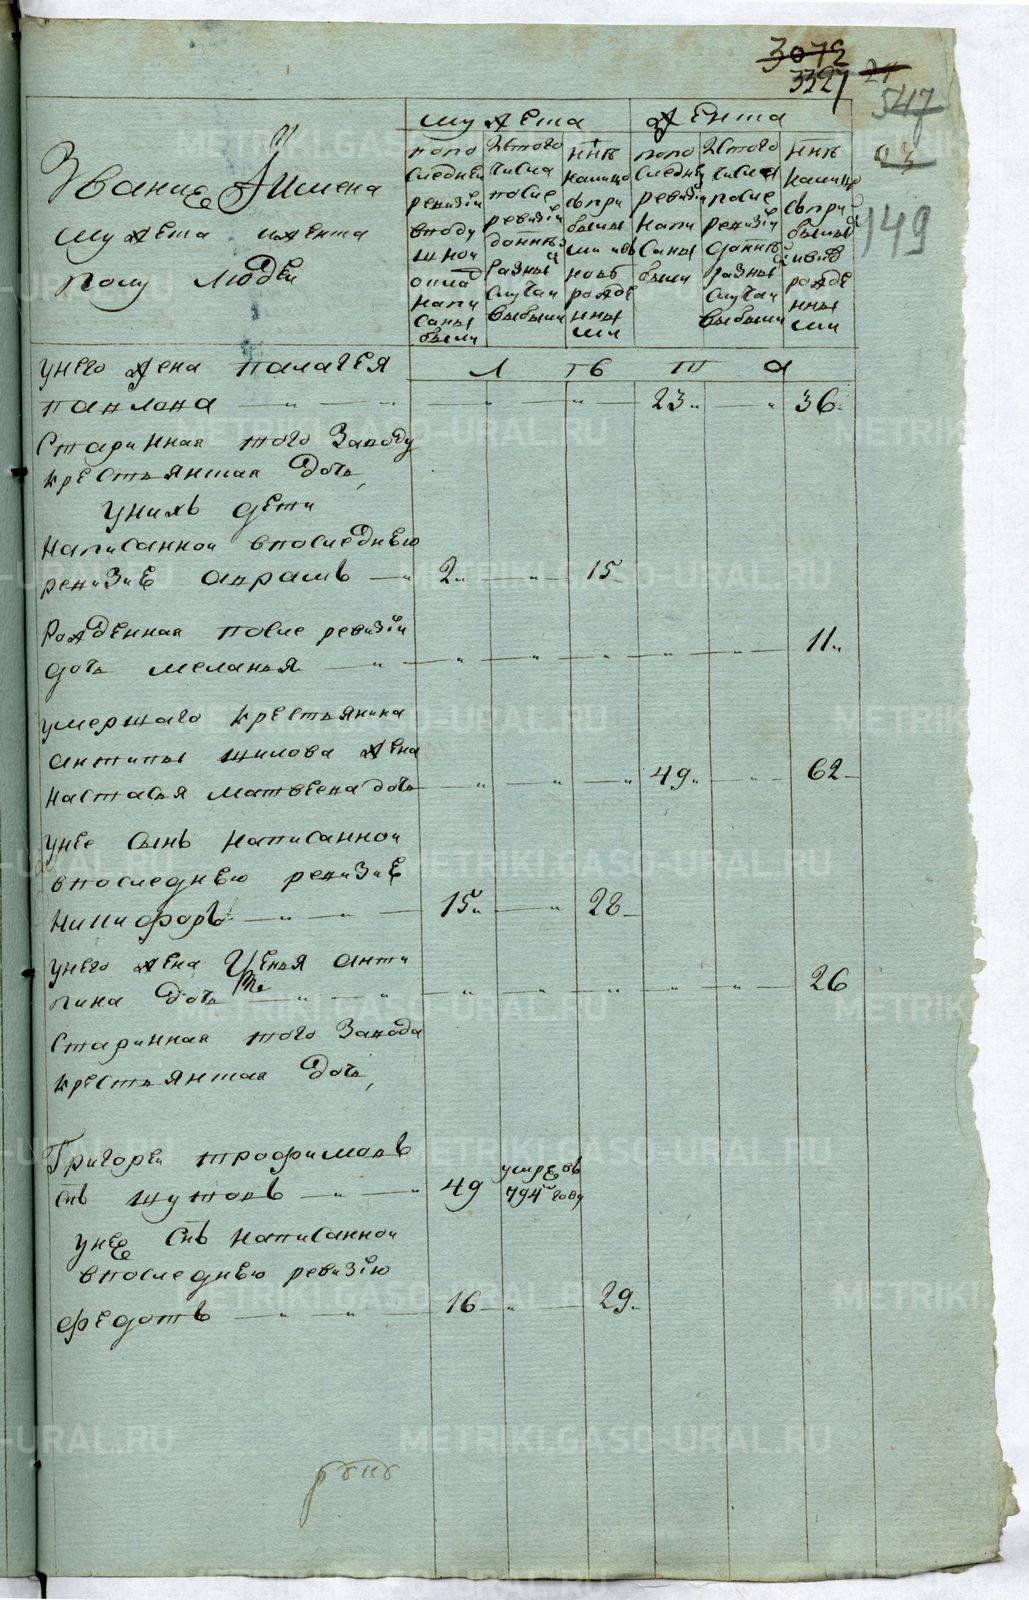 3072
3327 21
547
93
149
мужеска женска
Звание Имена
мужеска иженска
полу людеи
попо следнеи ревизии вподу шнои оклад написаны были
Истого числа после ревизии донынѣ разныи случаи выбыли
ннѣ налицо съ при былыми ивновь рожденными
попо следнеи ревизии написаны были
Истого числа после ревизии донынѣ разныи случаи выбыли
ннѣ налицо съ при былыми ивновь рожденными
Л ѣтъ
унего жена палагея
павлова — „ — „ — „ — „ — 23„ — „ 36„
Стариннаи того Заводу
крестьянская дочь,
унихъ дети
написаннои впоследнею
ревизие аврамъ — „ 2„ — „ 15
Рожденная после ревизіи
дочь меланья — „ — „ — „ — „ — „ — „ 11„
умершаго крестьянина
антипы шилова жена
настасья матвеева дочь — „ — „ — „ 49„ — „ 62
унее сынъ написаннои
впоследнею ревизие
никифоръ — „ — „ 15„ — „ 28
унего жена Ксенья анти
пина дочь — „ — „ — „ — „ — „ — „ — „ 26
Стариннаи того Завода
крестьянская дочь,
Григореи трофимовъ
снъ шутовъ — „ — „ 49 умре въ 794м году
унего снъ написаннои
впоследнею ревизію
федотъ — „ — „ 16 — „ 29„
METRIKI.GASO-URAL.RU